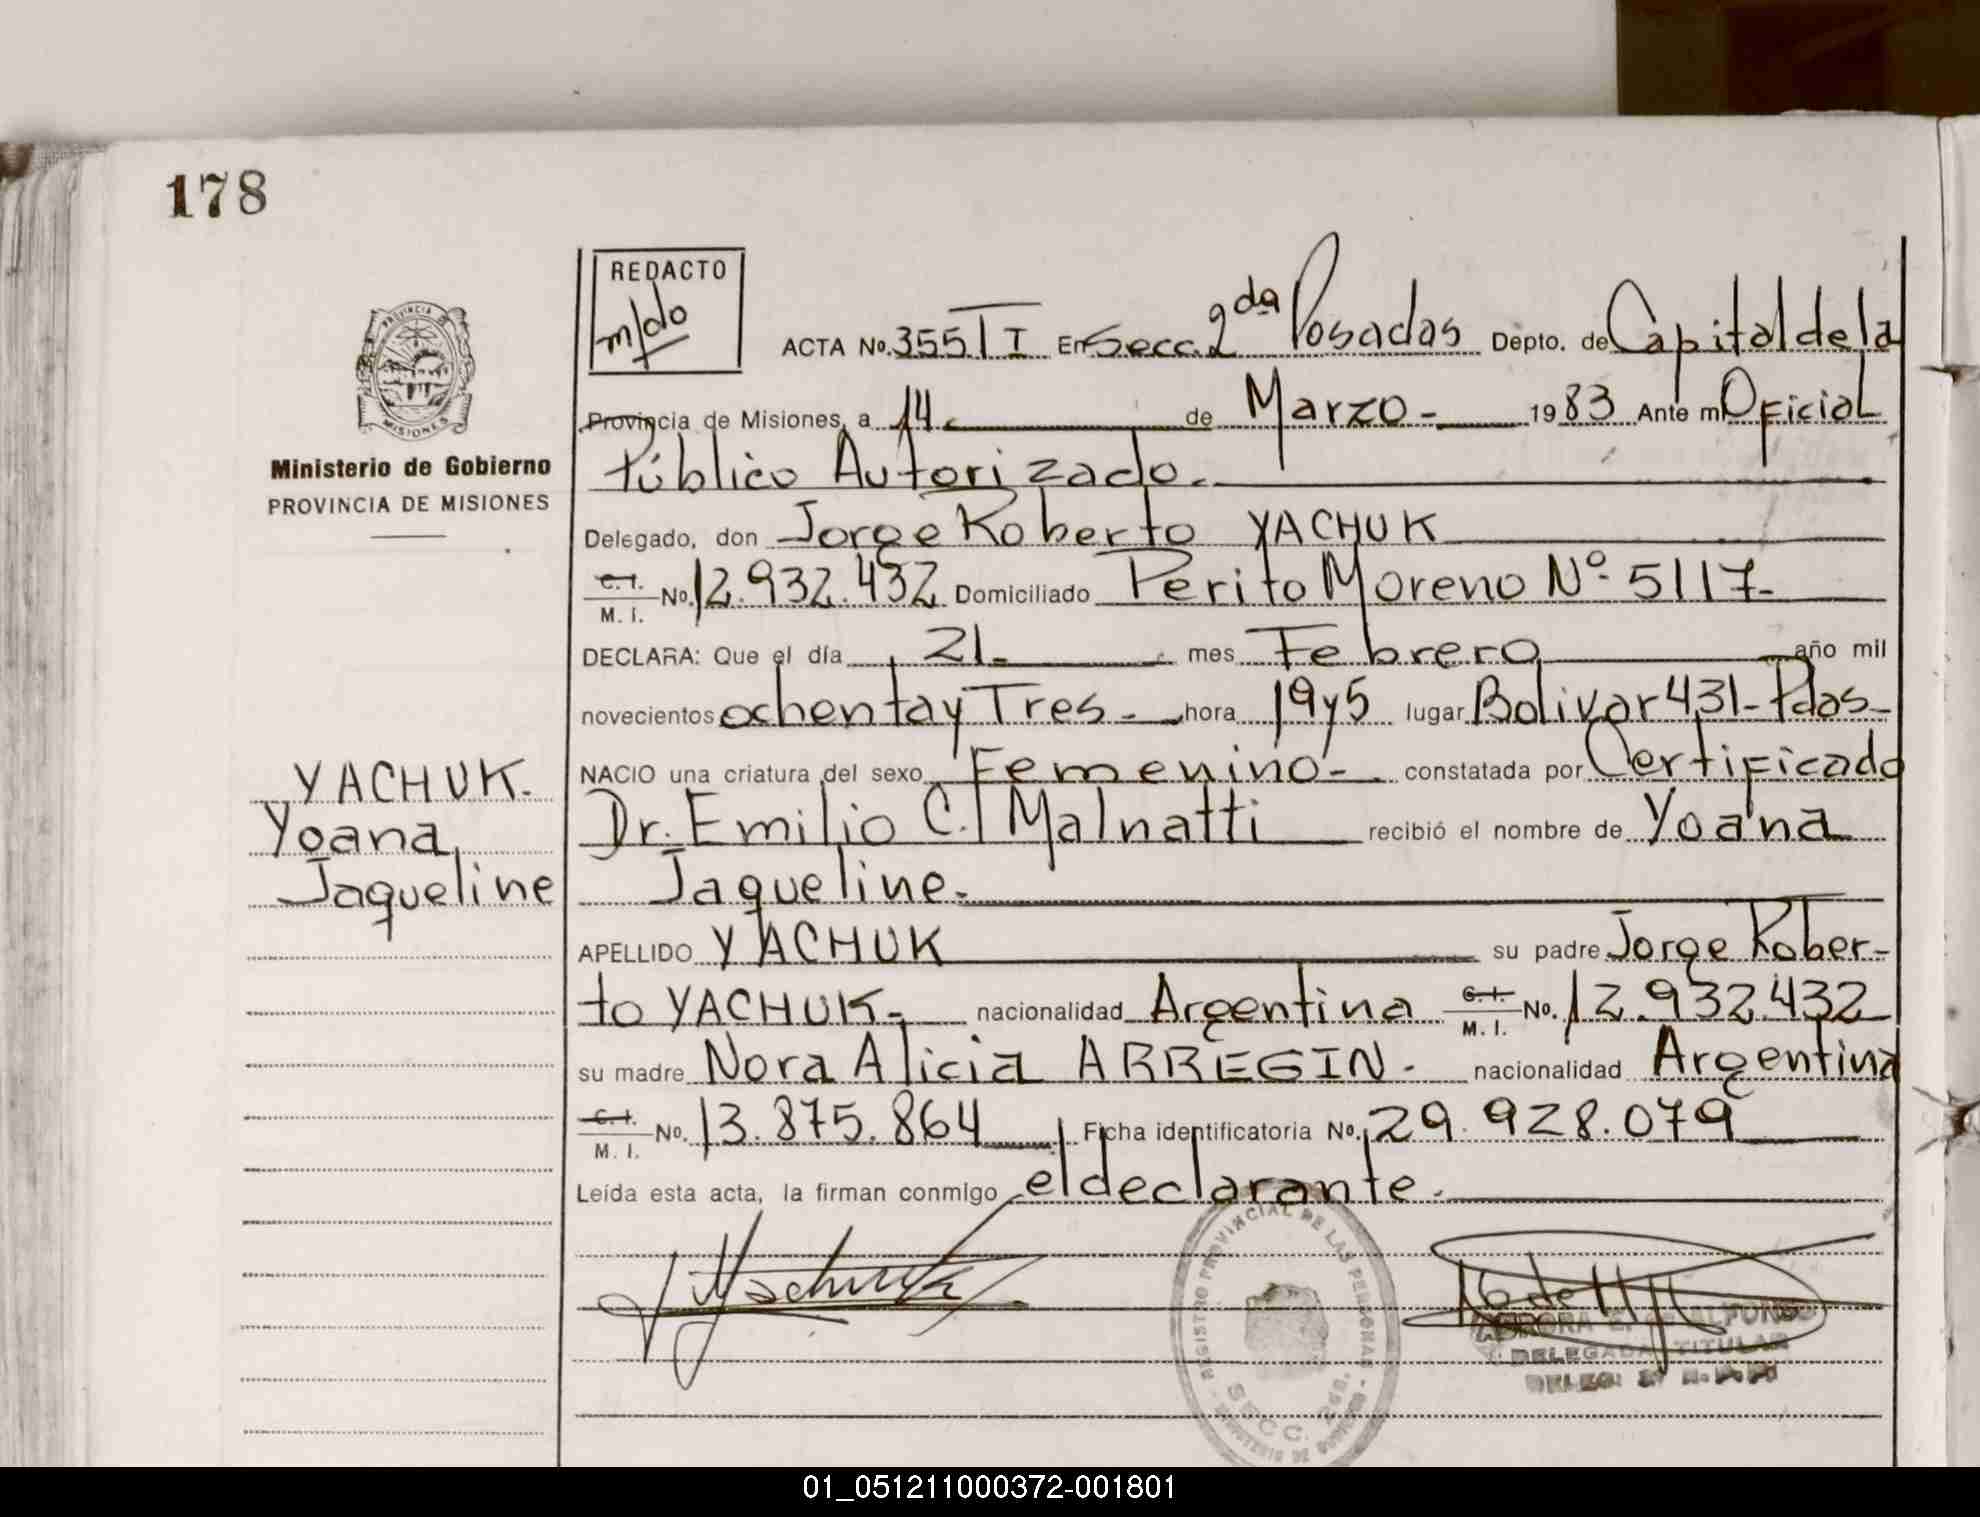 178
REDACTO
m/do
PROVINCIA D
MISIONES
Ministerio de Gobierno
PROVINCIA DE MISIONES
ACTA No. 355 T I En Secc. 2da Posadas Depto. de Capital de la
Provincia de Misiones, a 14. de Marzo - 1983 Ante mi Oficial
Público Autorizado.
Delegado, don Jorge Roberto YACHUK
C. I. M. I. No. 12.932.432 Domiciliado Perito Moreno Nº 5117-
DECLARA: Que el día 21- mes Febrero año mil
novecientos ochenta y Tres - hora 19 y 5 lugar Bolivar 431- Pdas-
NACIO una criatura del sexo Femenino- constatada por Certificado
Dr. Emilio C. Malnatti recibió el nombre de Yoana
Jaqueline-
YACHUK.
Yoana
Jaqueline
APELLIDO YACHUK su padre Jorge Rober-
to YACHUK- nacionalidad Argentina C. I. M. I. No. 12.932.432
su madre Nora Alicia ARREGIN - nacionalidad Argentina
C. I. M. I. No. 13.875.864 Ficha identificatoria No. 29.928.079
Leída esta acta, la firman conmigo el declarante.
Yachuk
REGISTRO PROVINCIAL DE LAS PERSONAS
SECC. 2da.
ALFONSO
DELEGADA TITULAR
01_051211000372-001801